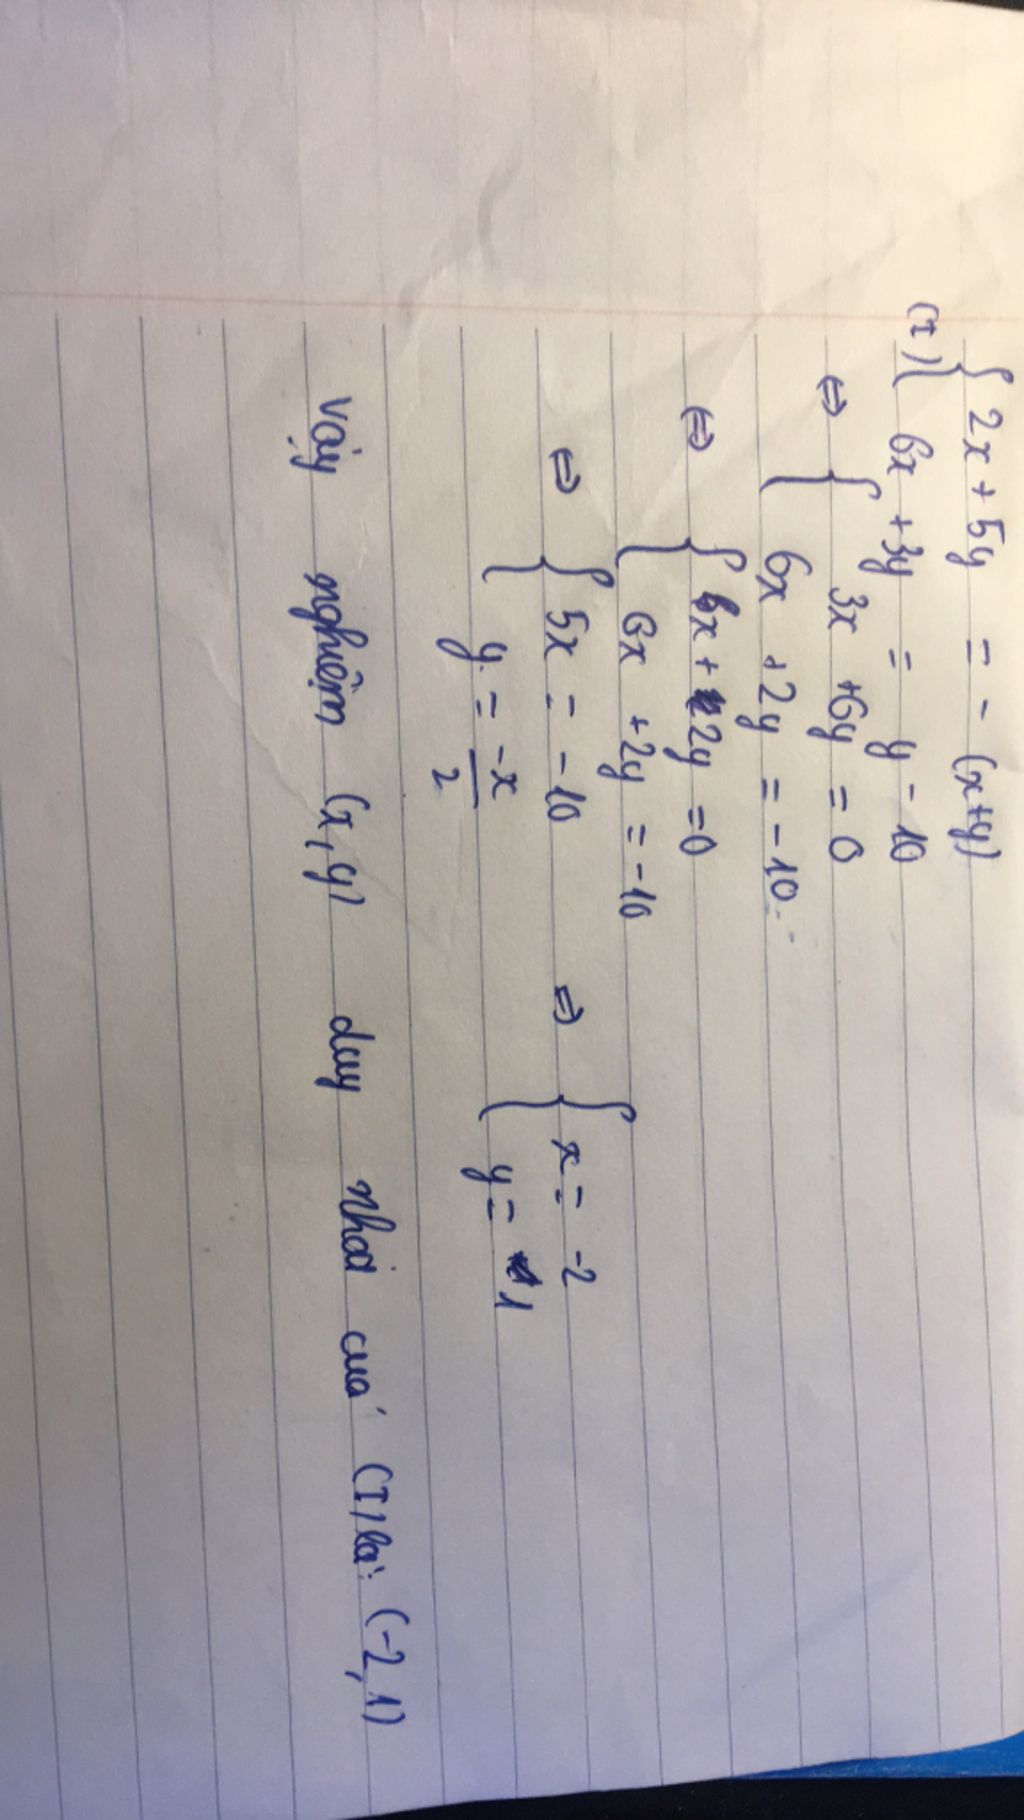 (I) { 2x + 5y = - (x+y)
6x + 3y = y - 10
⇔ { 3x + 6y = 0
6x + 2y = -10
⇔ { x + 2y = 0
6x + 2y = -10
⇔ { 5x = -10 ⇒ { x = -2
y = -x/2 y = 1
Vậy nghiệm (x,y) duy nhất của (I) là: (-2,1)